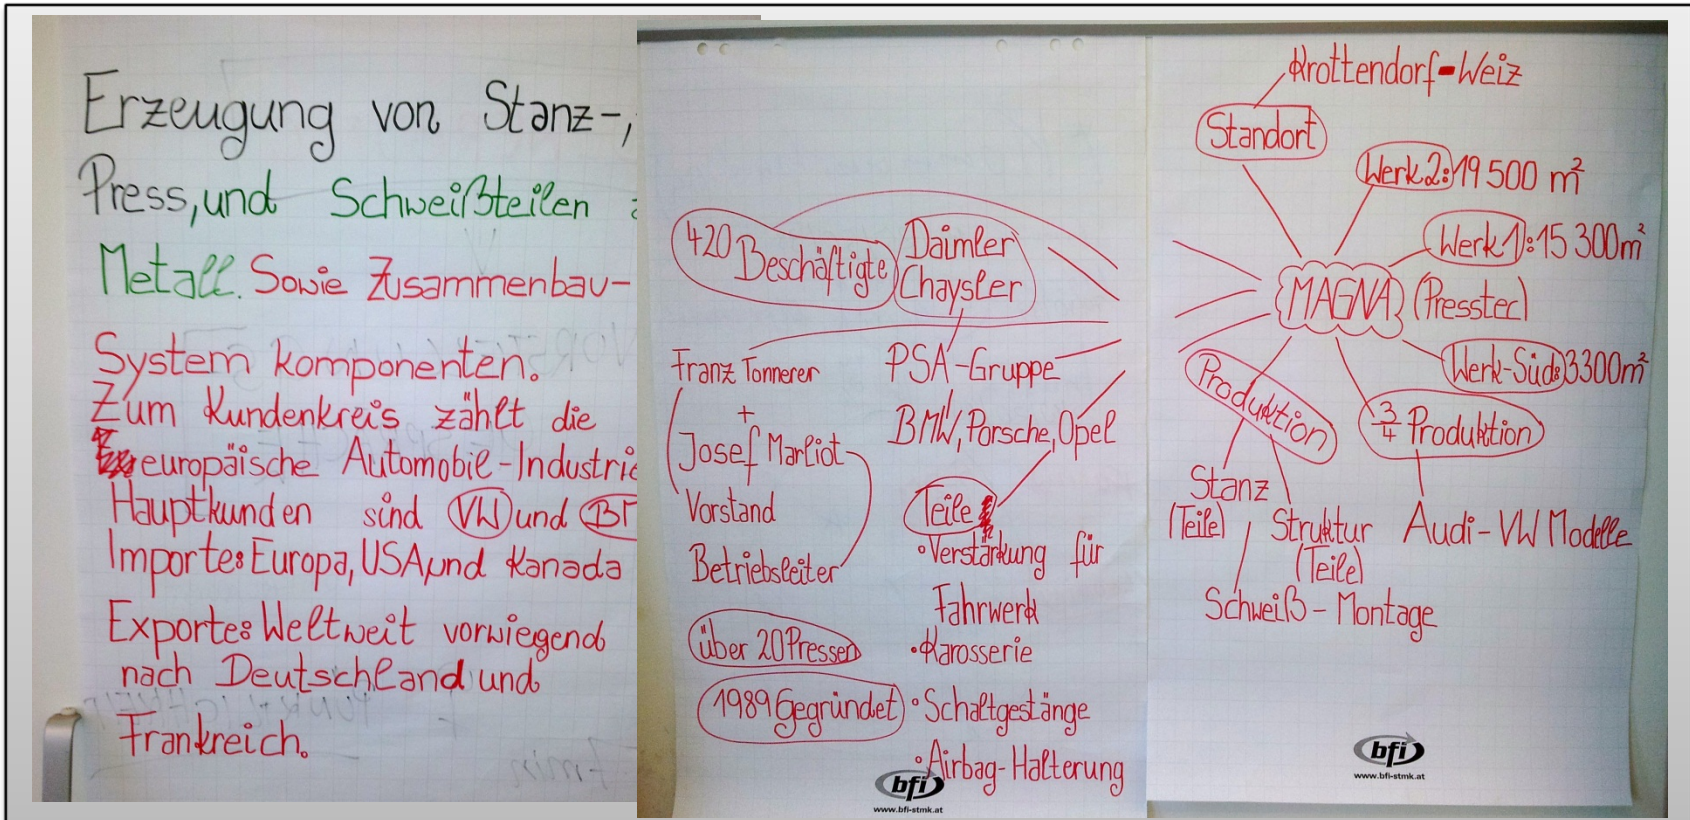 Erzeugung von Stanz-,
Press, und Schweißteilen
Metall. Sowie Zusammenbau-
System komponenten.
Zum Kundenkreis zählt die
europäische Automobil-Industrie
Hauptkunden sind VW und
Importe: Europa, USA und Kanada
Exporte: Weltweit vorwiegend
nach Deutschland und
Frankreich.
420 Beschäftigte
Daimler
Chaysler
Franz Tonnerer
+
Josef Marliot
Vorstand
Betriebsleiter
PSA-Gruppe
BMW, Porsche, Opel
Teile
•Verstärkung für
Fahrwerk
•Karosserie
•Schaltgestänge
•Airbag-Halterung
über 20 Pressen
1989 Gegründet
bfi
www.bfi-stmk.at
Krottendorf-Weiz
Standort
Werk 2: 19 500 m²
Werk 1: 15 300 m²
MAGNA (Presstec)
Werk-Süd: 3300 m²
Produktion
3/4 Produktion
Stanz
(Teile)
Struktur
(Teile)
Audi-VW Modelle
Schweiß-Montage
bfi
www.bfi-stmk.at